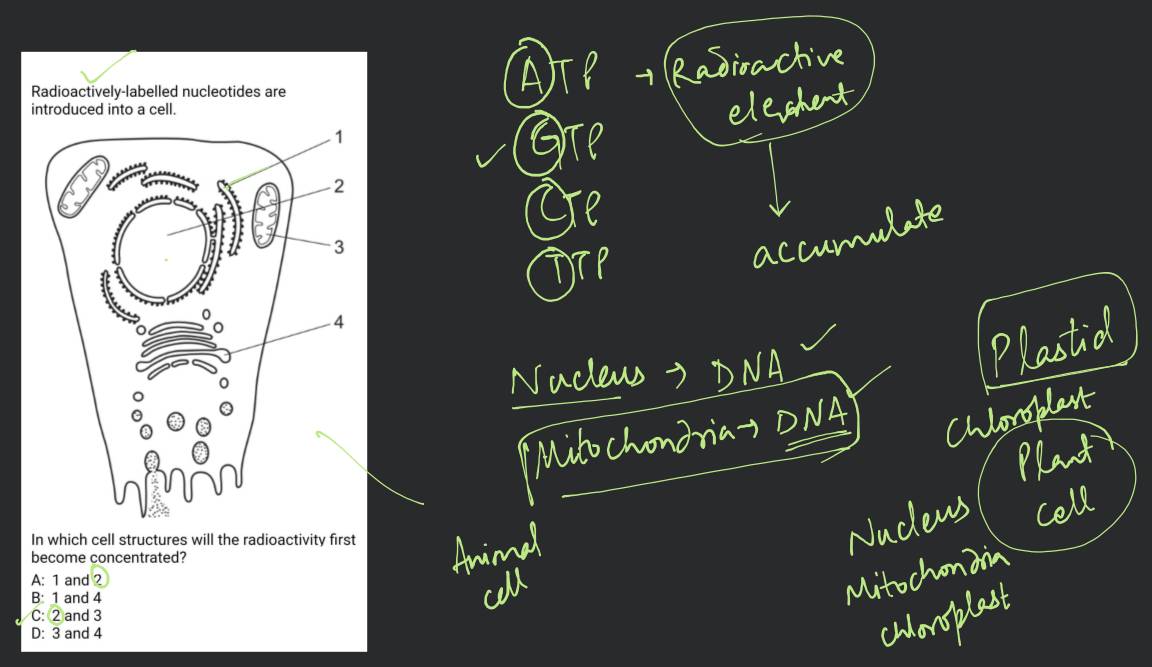 Radioactively-labelled nucleotides are
introduced into a cell.
1
2
3
4
In which cell structures will the radioactivity first
become concentrated?
A: 1 and 2
B: 1 and 4
C: 2 and 3
D: 3 and 4
ATP → Radioactive
element
GTP
CTP
TTP
accumulate
Nucleus → DNA
Mitochondria → DNA
Animal
cell
Plastid
Chloroplast
Plant
cell
Nucleus
Mitochondria
chloroplast